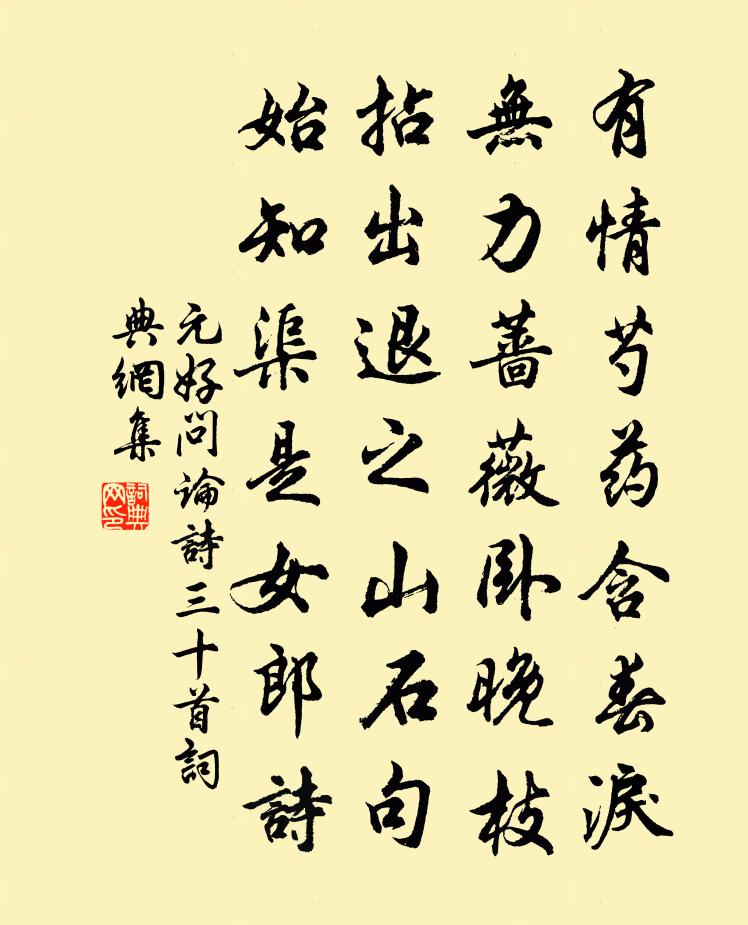 有情芍药含春淚
無力薔薇卧晚枝
拈出退之山石句
始知渠是女郎詩
元好問論詩三十首詞
典網集
詞典
网印